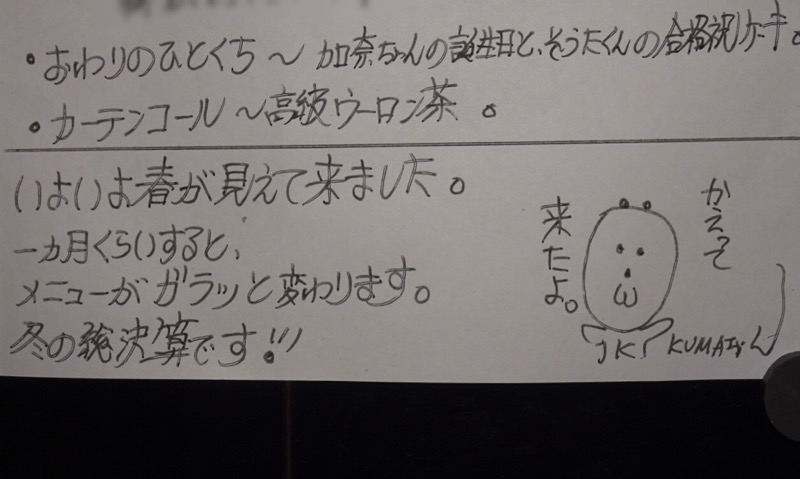 ・おわりのひとくち～加奈ちゃんの誕生日と、そうたくんの合格祝ケーキ。
・カーテンコール～高級ウーロン茶。
いよいよ春が見えて来ました。
一カ月くらいすると、
メニューがガラッと変わります。
冬の総決算です!!!
かえって
来たよ。
JK!